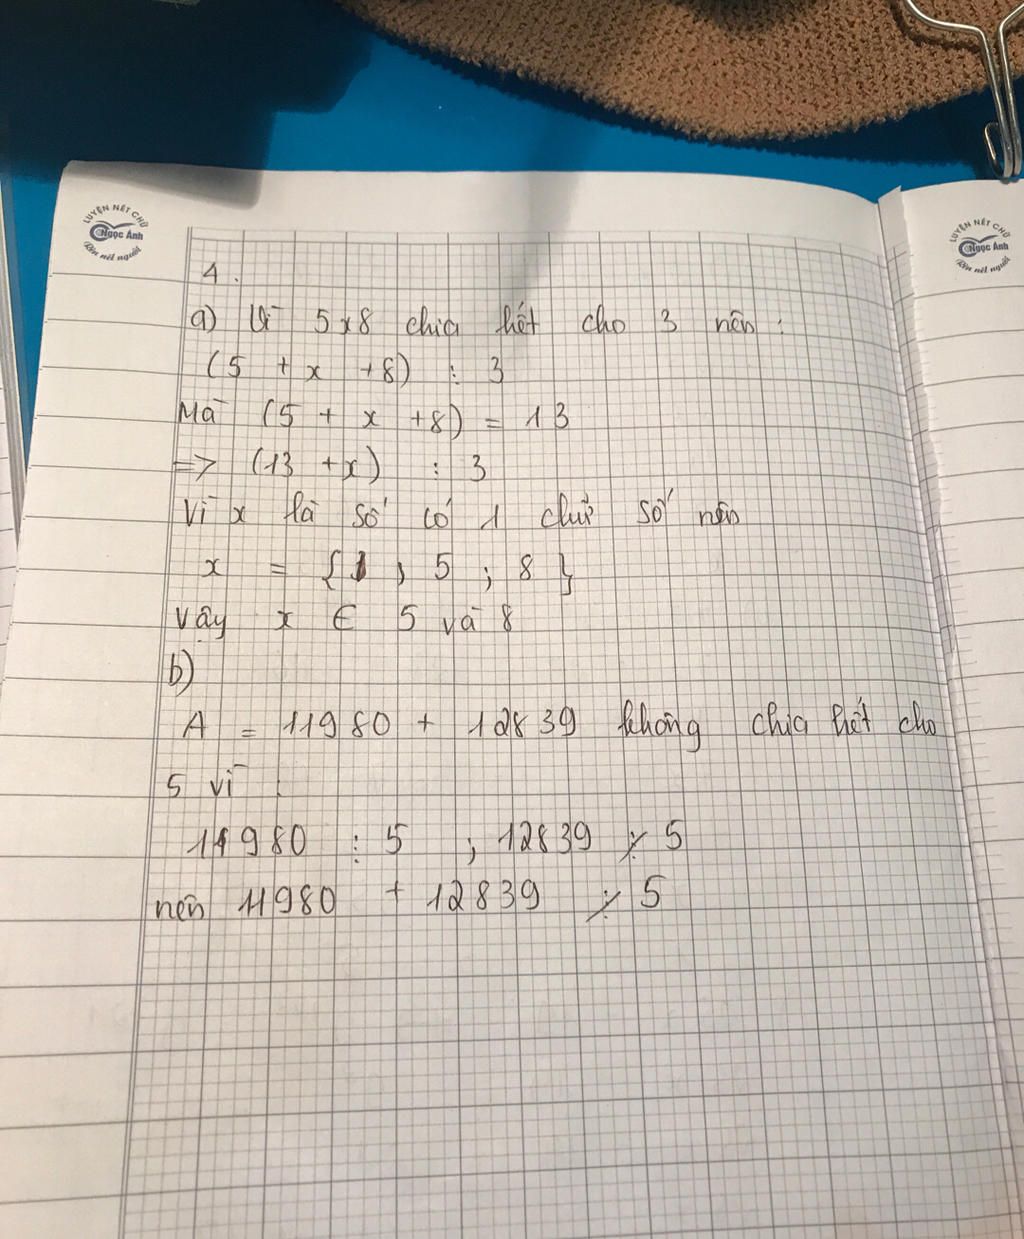 LUYỆN NÉT CHỮ
Ngọc Ánh
Rèn nết người
LUYỆN NÉT CHỮ
Ngọc Ánh
Rèn nết người
4.
a) Vì 5x8 chia hết cho 3 nên :
(5 + x + 8) ⋮ 3
Mà (5 + x + 8) = 13
=> (13 + x) ⋮ 3
Vì x là số có 1 chữ số nên
x = { , 5 ; 8 }
Vậy x ∈ 5 và 8
b)
A = 11980 + 12839 không chia hết cho
5 vì :
11980 ⋮ 5 , 12839 ⋮̸ 5
nên 11980 + 12839 ⋮̸ 5